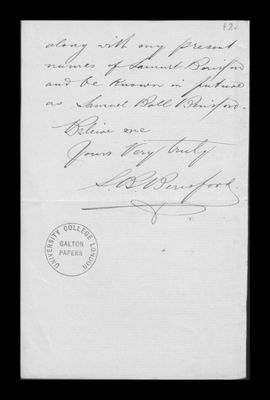 along with my present
names of Samuel Berisford
and be known in future
as Samuel Ball Berisford.
Believe me
Yours Very truly
S. B. Berisford
UNIVERSITY COLLEGE LONDON
GALTON
PAPERS